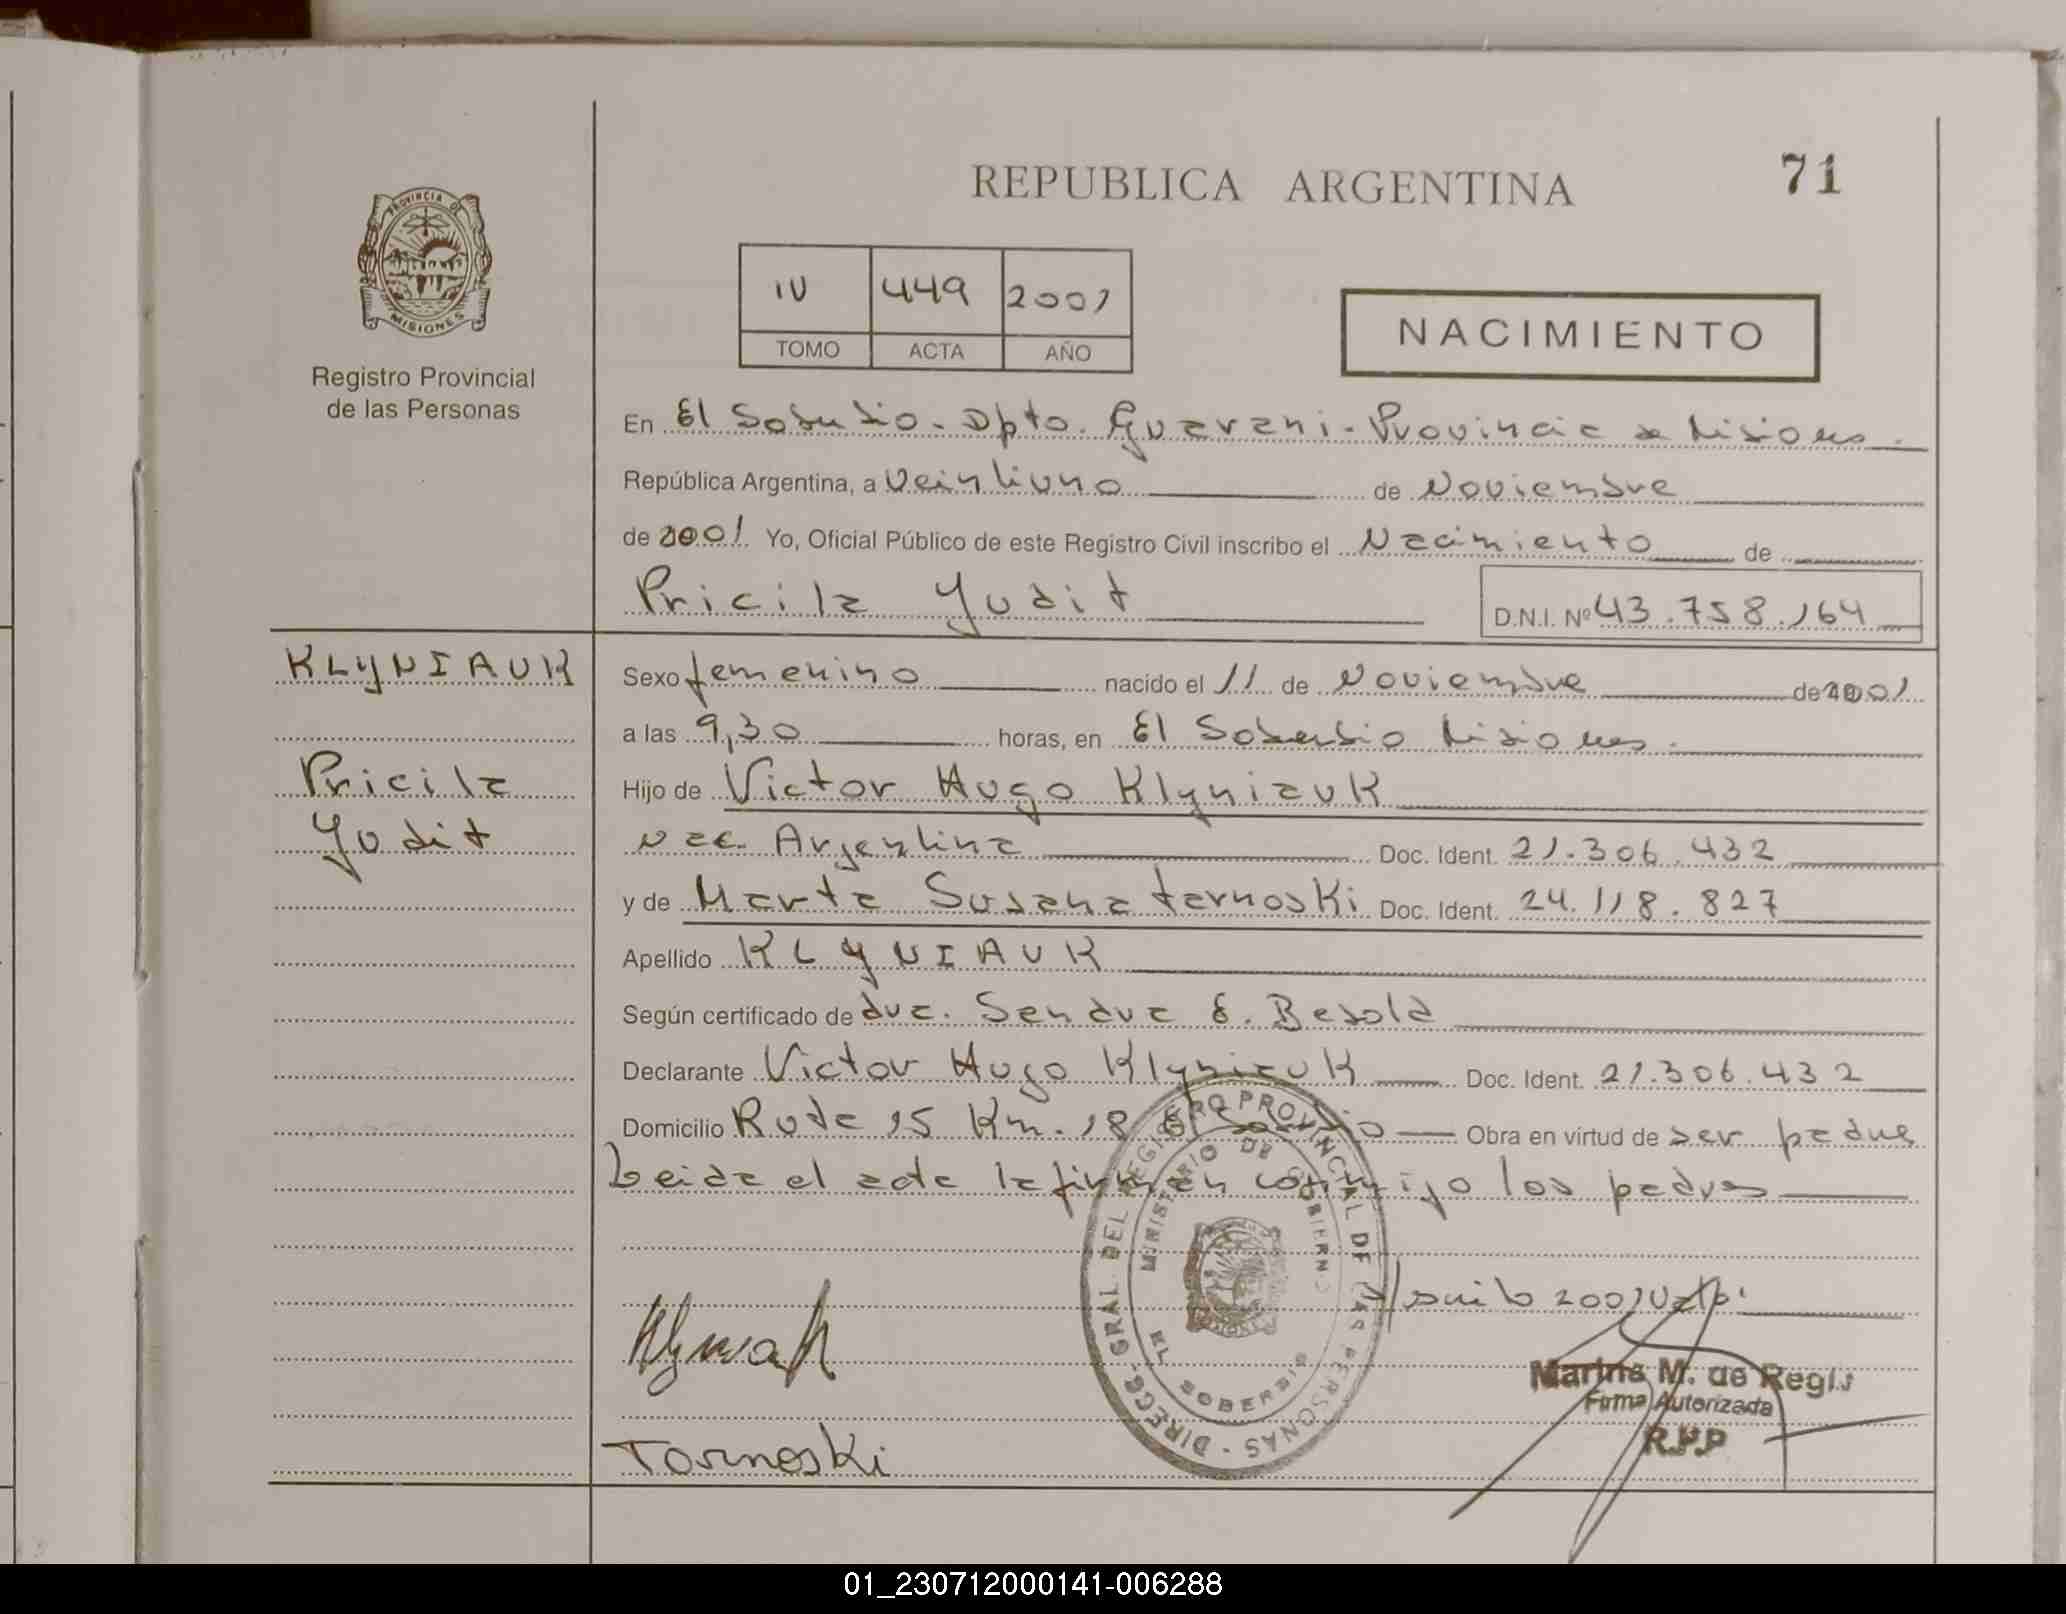 71
REPUBLICA ARGENTINA
PROVINCIA DE
MISIONES
Registro Provincial
de las Personas
IV 449 2001
TOMO ACTA AÑO
NACIMIENTO
En El Soberbio - Dpto. Guarani - Provincia de Misiones.
República Argentina, a Veintiuno de Noviembre
de 2001 Yo, Oficial Público de este Registro Civil inscribo el Nacimiento de
Pricila Yudit D.N.I. Nº 43.758.164
KLYNIAUK
Pricila
Yudit
Sexo femenino nacido el 11 de Noviembre de 2001
a las 9,30 horas, en El Soberbio Misiones.
Hijo de Victor Hugo Klyniauk
Nac. Argentina Doc. Ident. 21.306.432
y de Marta Susana Tarnoski Doc. Ident. 24.118.827
Apellido KLYNIAUK
Según certificado de dra. Sandra E. Besold
Declarante Victor Hugo Klyniauk Doc. Ident. 21.306.432
Domicilio Ruta 15 Km. 18 El Soberbio Obra en virtud de ser padre
Leida el acta la firman conmigo los padres
2001 Vale.
DIRECC. GRAL. DEL REGISTRO PROVINCIAL DE LAS PERSONAS
MINISTERIO DE GOBIERNO
EL SOBERBIO
Marina M. de Regis
Firma Autorizada
R.P.P
Tarnoski
01_230712000141-006288